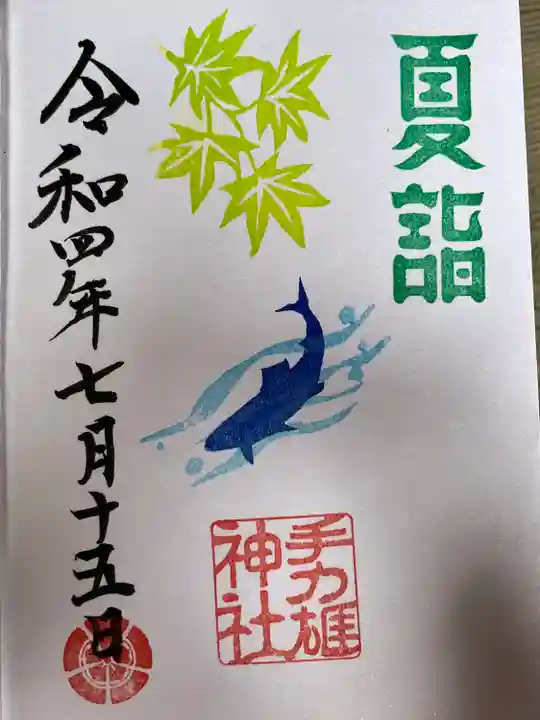 夏詣
手力雄
神社
令和四年七月十五日